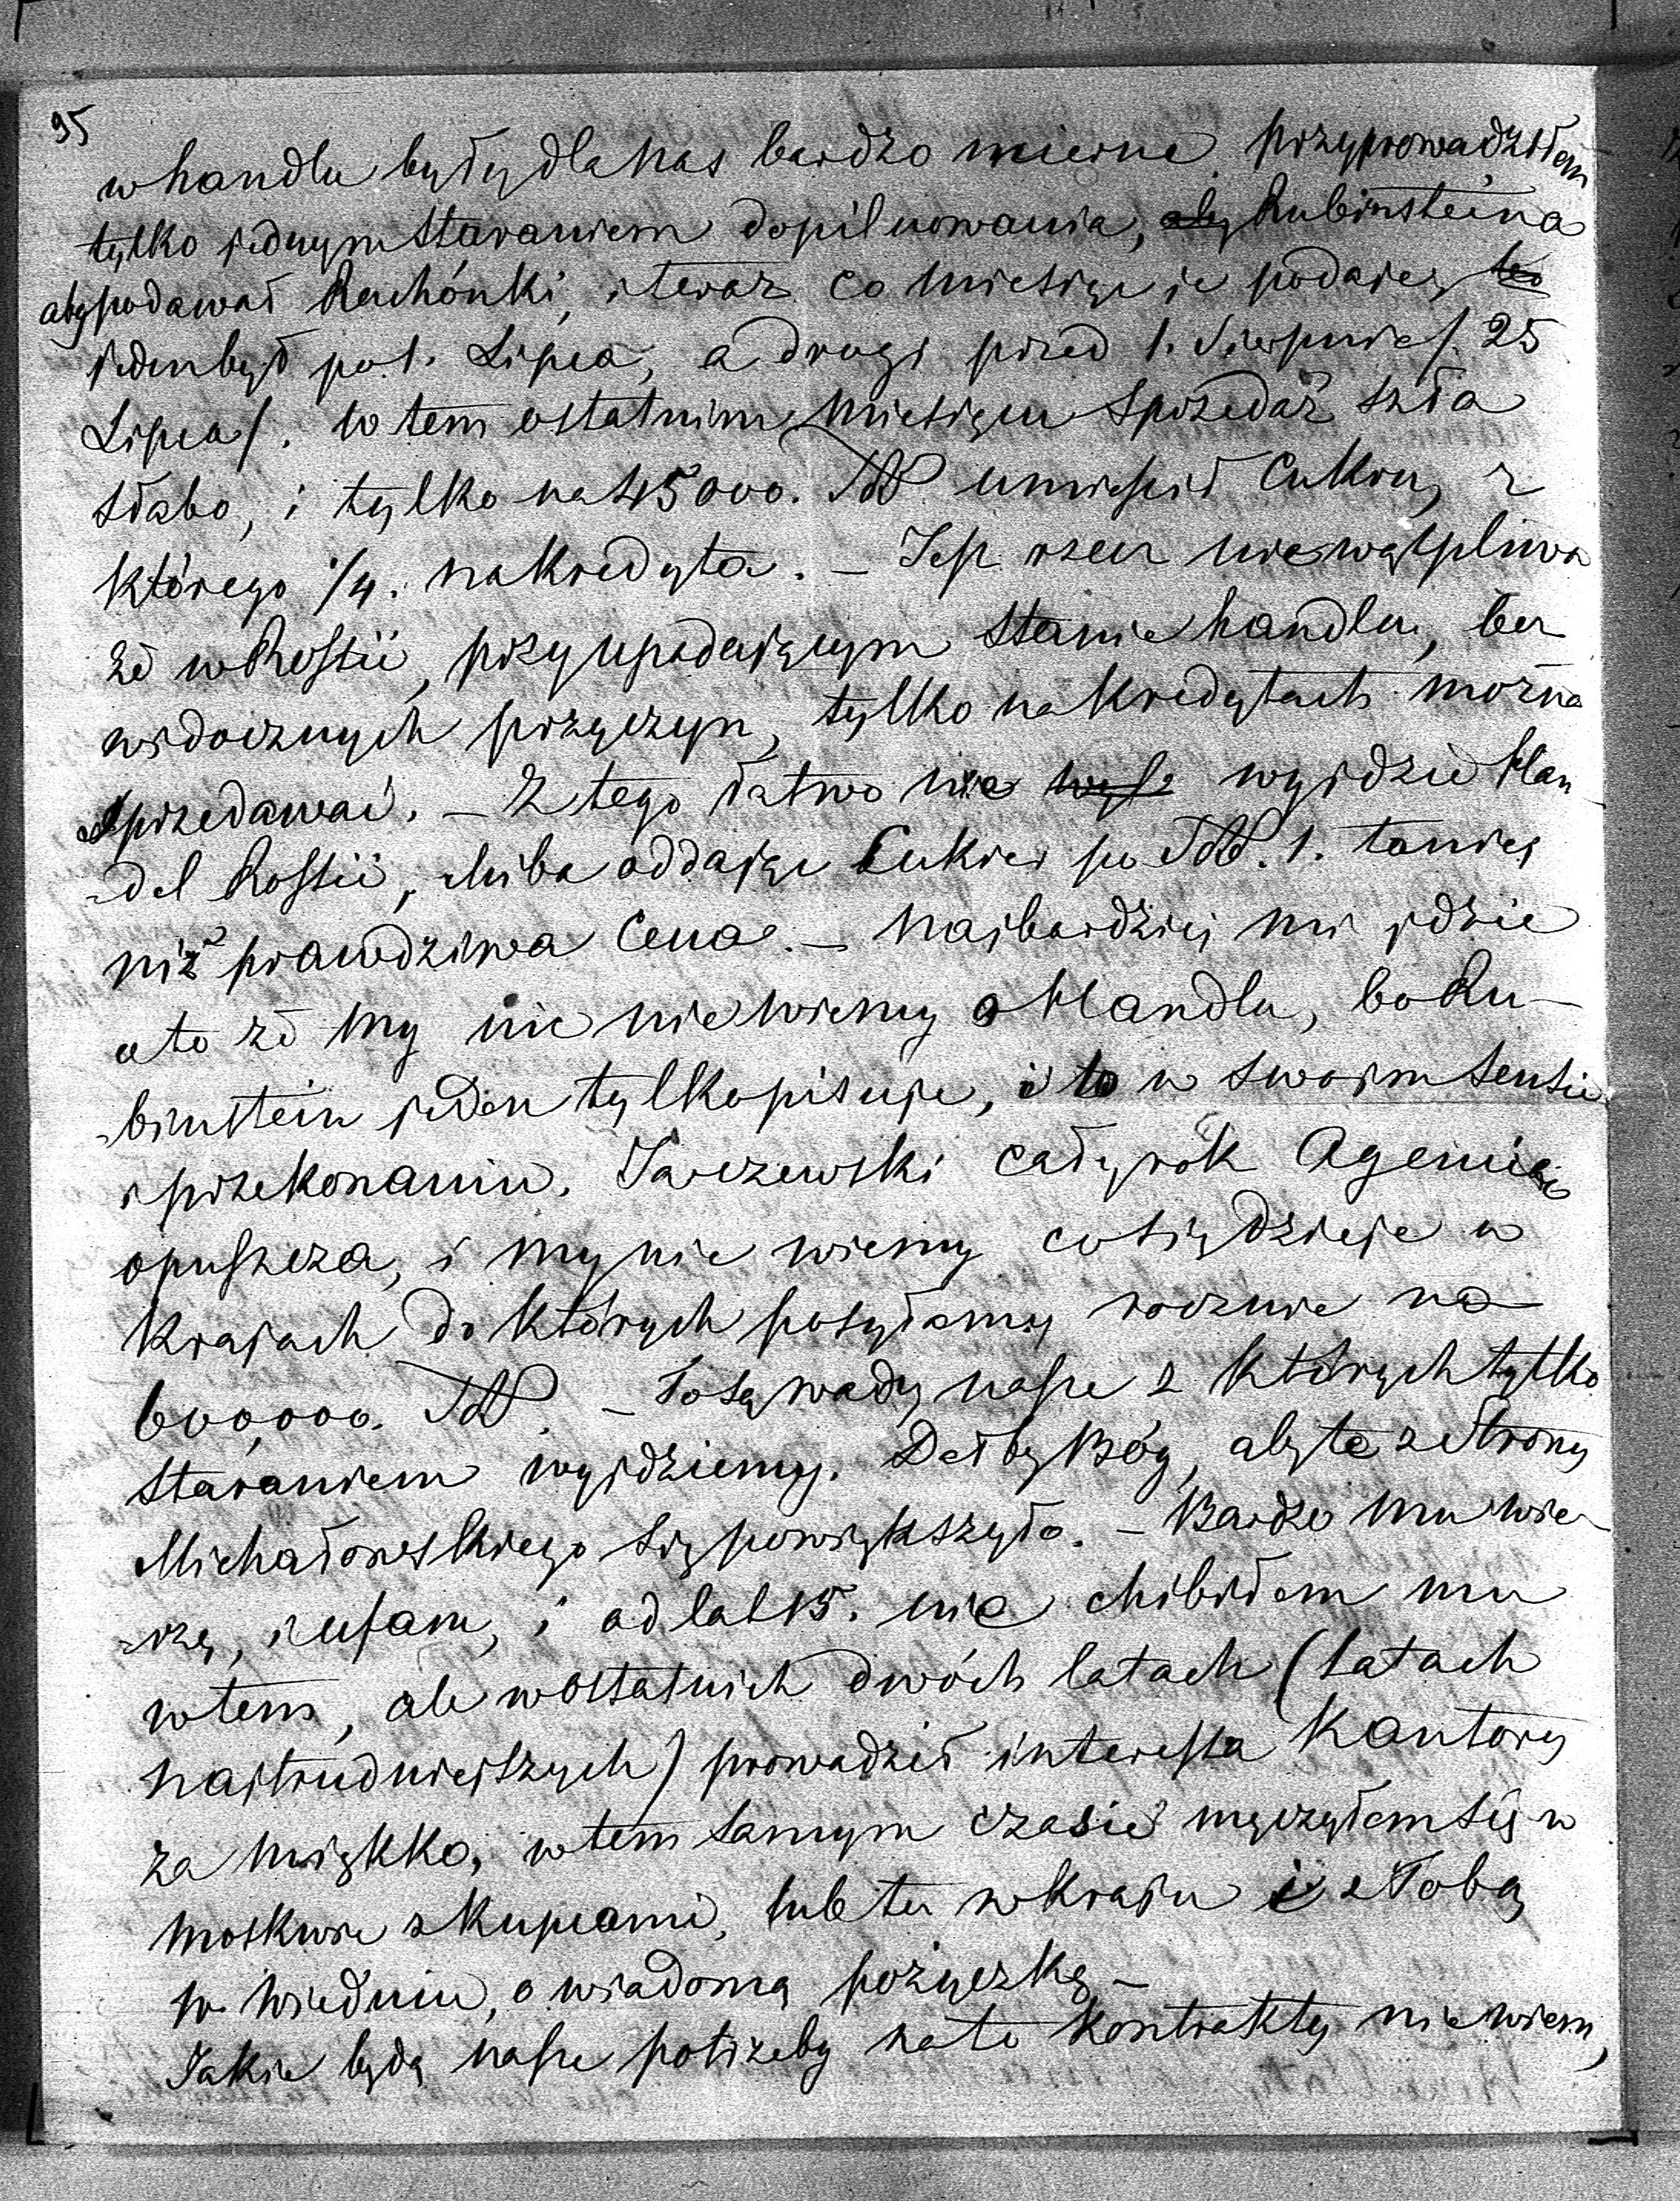 95
w handlu były dla nas bardzo mierne, przyprowadziłem
tylko jednym staraniem dopilnowania, aby Rubinsteina
aby podawał Rachónki, i teraz co miesiąc je podaje, to
jeden był po 1. Lipca, a drugi przed 1. Sierpnia /. 25
Lipca /. W tem ostatnim Miesiącu Sprzedaż szła
słabo, i tylko na 45000. umieścił Cukru, z
którego 1/4. na Kredyta. – Jest rzecz niewątpliwa
że w Rossii, przy upadającym stanie handlu, bez
widocznych przyczyn, tylko na Kredytach można
sprzedawać. – Z tego łatwo nie wyjdzie Han
-del Rossii, chiba oddając Cukier po 1. taniej
niż prawdziwa Cena. – Najbardziej mi jdzie
o to że my nic nie wiemy o Handlu, bo Ru-
-binstein jeden tylko pisuje, i to w swoim sensie
i przekonaniu. Tarczewski cały rok Agencie
opuszcza, i my nie wiemy co się dzieje w
Krajach do których posyłamy rocznie na
600,000. – To są wady nasze z których tylko
staraniem wyjdziemy. Dał by Bóg, aby te z Strony
Michałowskiego się powiększyło. – Bardzo mu wie-
-rzę, i ufam, i od lat 15. nie chibiłem mu
w tem, ale w ostatnich dwóch latach (latach
najtrudniejszych) prowadził interessa Kantory
za miękko, w tem samym czasie męczyłem się w
Moskwie z Kupcami, lub tu w Kraju i z Tobą
w Wiedniu, o wiadomą pożyczkę –
Jakie będą nasze potrzeby na te Kontrakty nie wiem,